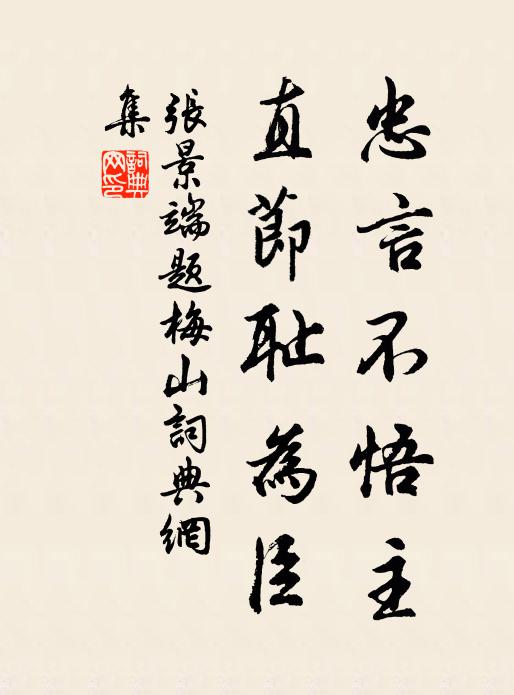 忠言不悟主
直節耻為臣
張景端題梅山詞典網
集
詞典网印